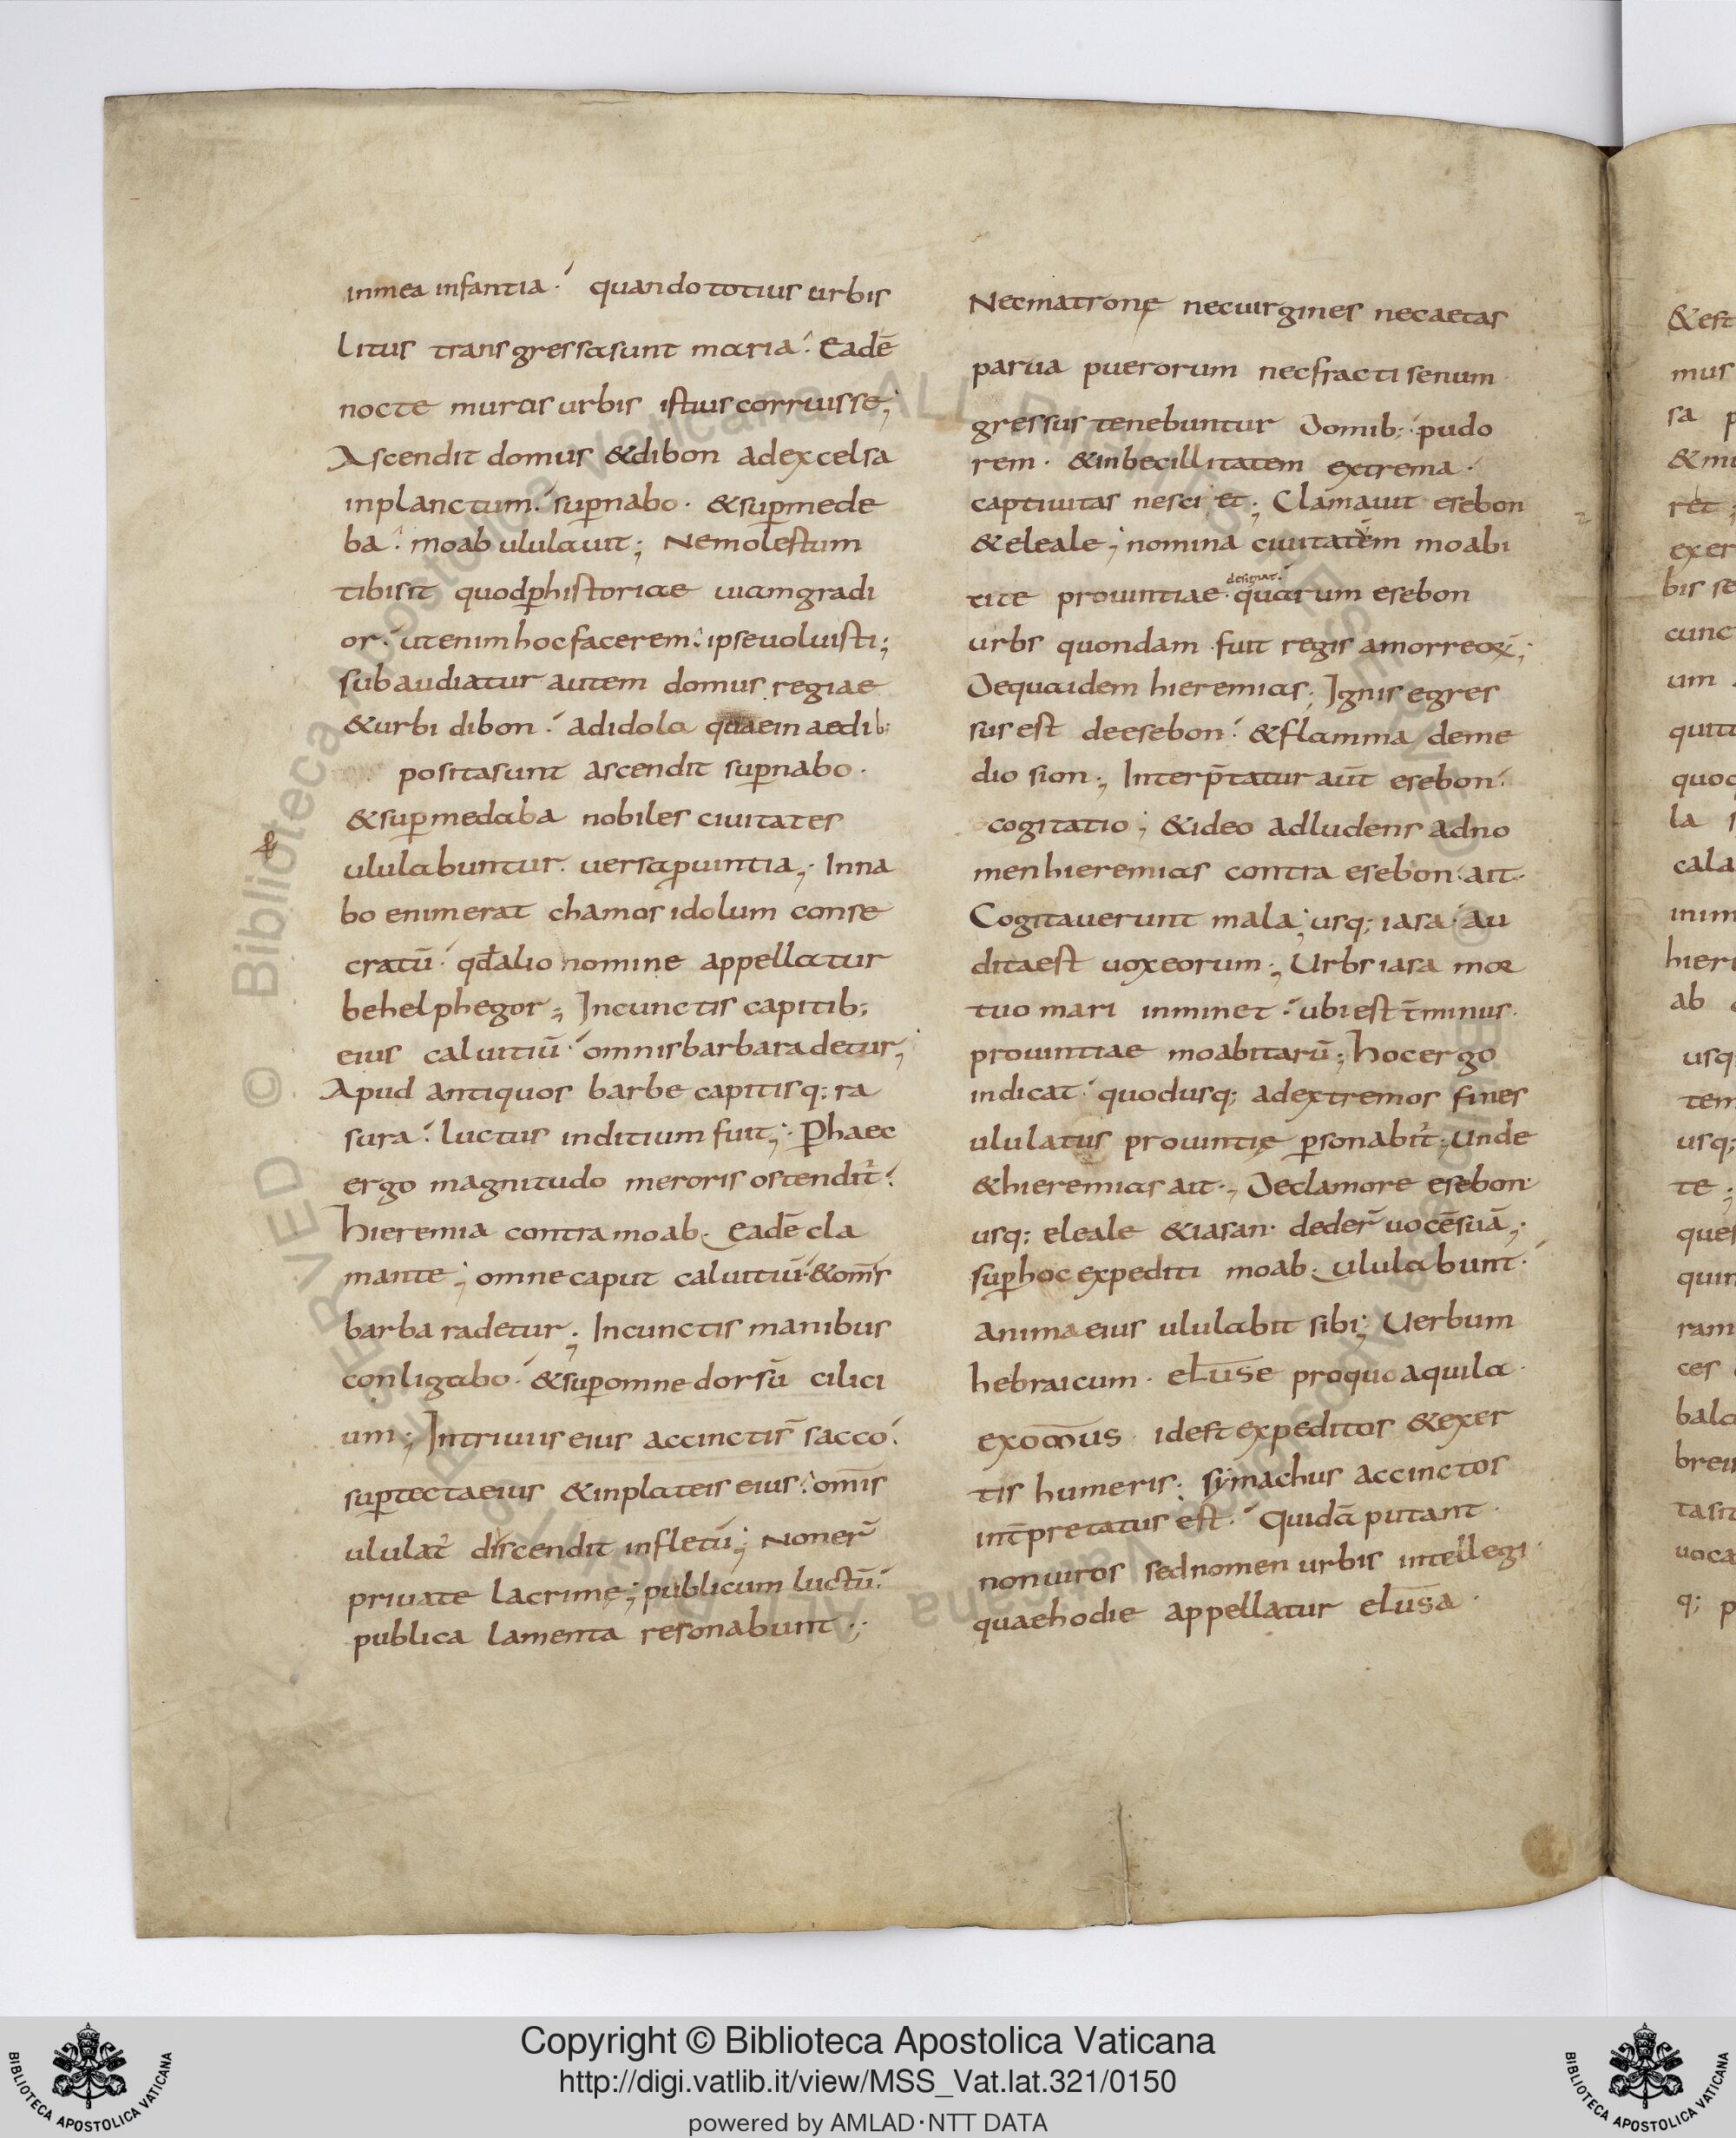 inmea infantia· quando totius urbis
litus transgressasunt maria· Eadē
nocte muros urbis istius corruisse;
Ascendit domus &dibon adexcelsa
inplanctum· suꝑnabo· &suꝑmede
ba· moab ululauit; Nemolestum
tibisit quodꝑhistoriae uiamgradi
or· utenimhocfacerem· ipseuoluisti;
subaudiatur autem domus regiae
&urbi dibon· adidola quaein aedib;
positasunt ascendit suꝑnabo·
&suꝑmedaba nobiles ciuitates
ululabuntur· uersaꝓuintia; Inna
bo enimerat chamos idolum conse
cratū· qđalio nomine appellatur
behelphegor; Incunctis capitib;
eius caluitiū· omnisbarbaradetur;
Apud antiquos barbe capitisq; ra
sura· luctus inditium fuit; Ꝑhaec
ergo magnitudo meroris ostendit̃·
hieremia contra moab· Eadē cla
mante; omnecaput caluitiū·&om̄s
barba radetur; Incunctis manibus
conligabo· &suꝑomne dorsū cilici
um; Intriuiis eius accinctis̃ sacco·
suꝑtectaeius &inplateis eius· om̄is
ululat̃ discendit infletū; Noner̃
priuate lacrimę; publicum luctū·
publica lamenta resonabunt;
Necmatronę necuirgines necaetas
parua puerorum necfracti senum
gressus tenebuntur domib;· pudo
rem· &inbecillitatem extrema·
captiuitas nesciet; Clamauit esebon
&eleale; nomina ciuitatem moabi
designat·
tite prouintiae· quarum esebon
urbs quondam fuit regis amorreoꝝ;
Dequaidem hieremias; Ignis egres
sus est deesebon· &flamma deme
dio sion; Interp̄tatur aūt esebon·
cogitatio; &ideo adludens adno
menhieremias contra esebon· ait·
Cogitauerunt mala; usq; iasa· au
ditaest uoxeorum; Urbs iasa mor
tuo mari inminet· ubiest t̄minus·
prouintiae moabitarū; hocergo
indicat· quodusq; adextremos fines
ululatus prouintię ꝑsonabit̃; Unde
&hieremias ait; Declamore esebon·
usq; eleale &iasan· deder̃ uocēsuā;
suꝑhoc expediti moab· ululabunt·
animaeius ululabit sibi; Uerbum
hebraicum· elūse proquoaquila·
exomus· idest expeditos &exer
tis humeris; symachus accinctos
int̄pretatus est· Quidā putant·
nonuiros sednomen urbis intellegi·
quaehodie appellatur elūsa·
&est
mus
sa p
&mu
ret;
exer
bis se
cunc
um
quita
quoq
la s
cala
inim
hieri
ab
usq
tem
usq;
te;
ques
quin
ram
ces
bala
brei
tasit
uoca
q; p
© Biblioteca Apostolica Vaticana ALL RIGHTS RESERVED
Copyright © Biblioteca Apostolica Vaticana
http://digi.vatlib.it/view/MSS_Vat.lat.321/0150
powered by AMLAD·NTT DATA
BIBLIOTECA APOSTOLICA VATICANA
BIBLIOTECA APOSTOLICA VATICANA